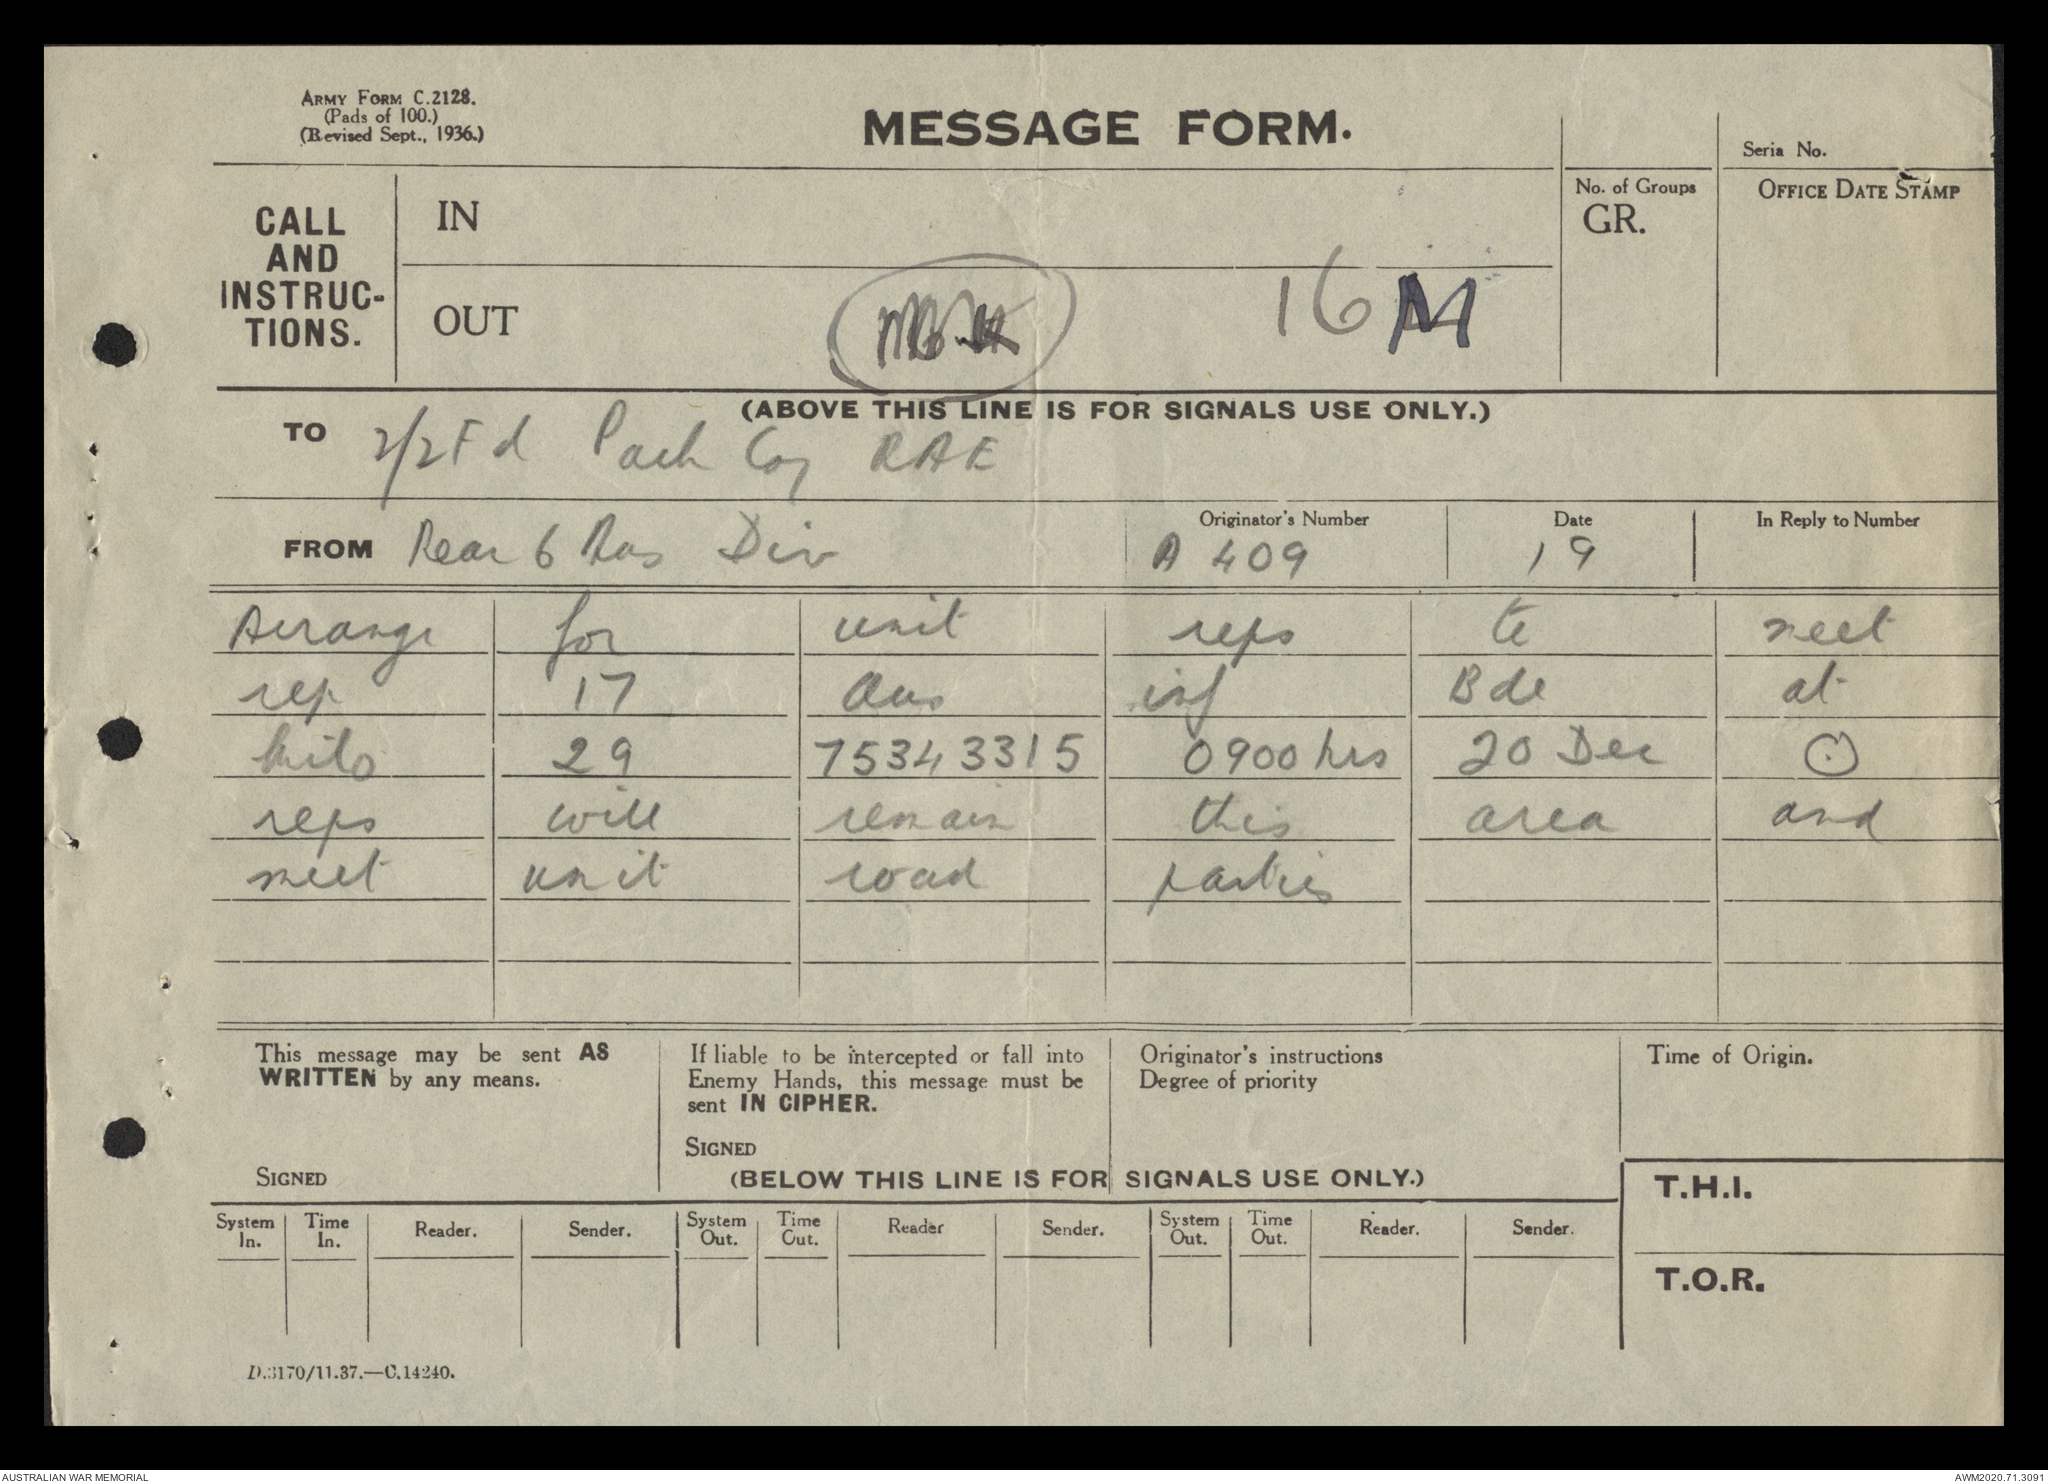 ARMY FORM C.2128.
(Pads of 100.)
(Revised Sept., 1936.)
MESSAGE FORM.
Seria No.
CALL AND INSTRUC-TIONS.
IN
No. of Groups
GR.
OFFICE DATE STAMP
OUT
16 M
(ABOVE THIS LINE IS FOR SIGNALS USE ONLY.)
TO 2/2 Fd Park Coy RAE
FROM Rear 6 Aus Div
Originator's Number A 409
Date 19
In Reply to Number
Arrange for unit reps to meet
rep 17 Aus inf Bde at
kilo 29 75343315 0900 hrs 20 Dec ⊙
reps will remain this area and
meet unit road parties
This message may be sent AS WRITTEN by any means.
SIGNED
If liable to be intercepted or fall into Enemy Hands, this message must be sent IN CIPHER.
SIGNED
Originator's instructions
Degree of priority
Time of Origin.
(BELOW THIS LINE IS FOR SIGNALS USE ONLY.)
T.H.I.
System In. Time In. Reader. Sender. System Out. Time Out. Reader Sender. System Out. Time Out. Reader. Sender.
T.O.R.
D.3170/11.37.—C.14240.
AUSTRALIAN WAR MEMORIAL
AWM2020.71.3091